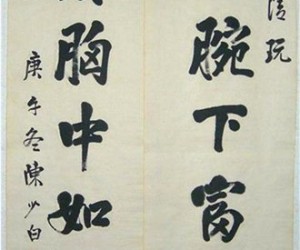 清玩
腕下富
胸中如
庚午冬陳少白